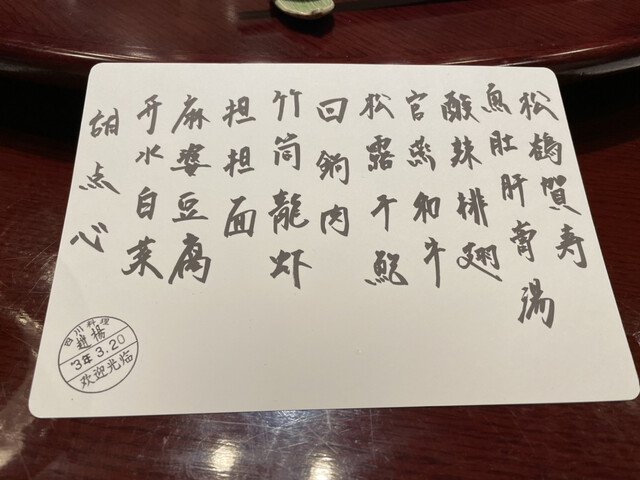 松鶴賀寿
魚肚肝膏湯
酸辣排翅
官燕和牛
松露干鮑
回鍋肉
竹筒龍虾
担担面
麻婆豆腐
开水白菜
甜点心
四川料理
趙楊
'3年3.20
欢迎光临